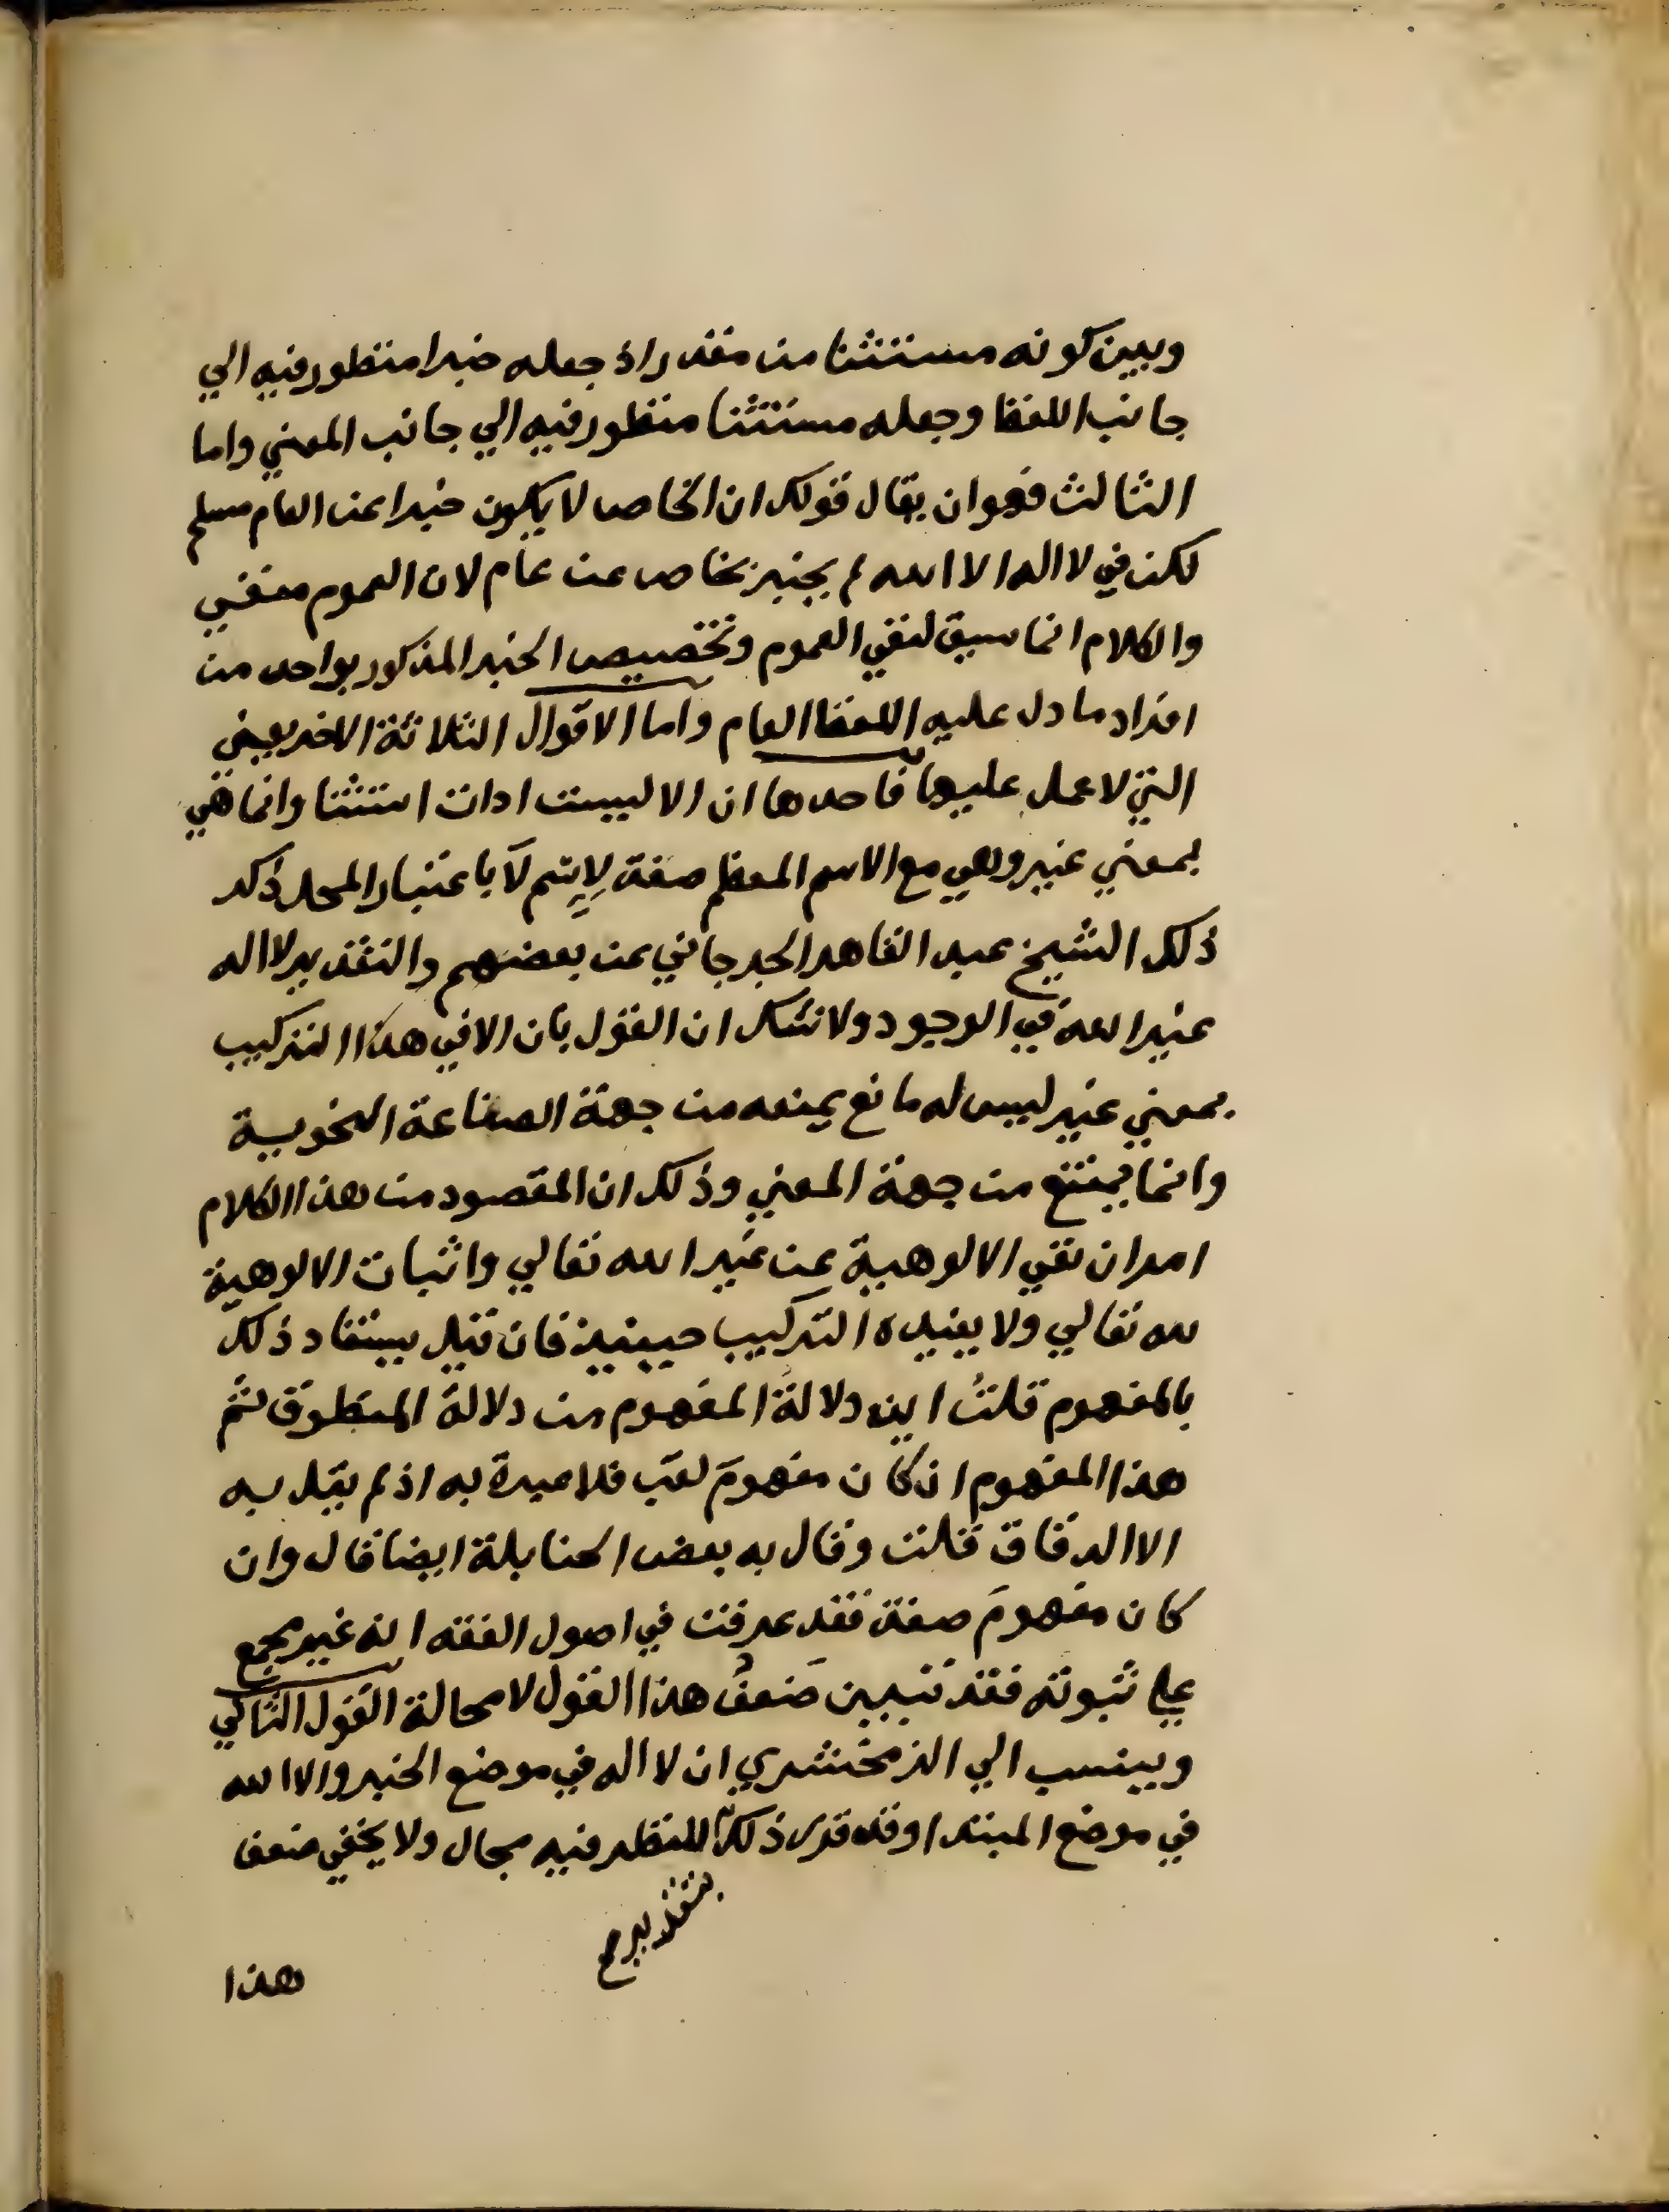 وبين كونه مستثنا من مقدر اذ جعله خبرا منظور فيه الي
جانب اللفظ وجعله مستثنا منظور فيه الي جانب المعني واما
الثالث فهو ان يقال قولك ان الخاص لا يكون خبرا عن العام مسلم
لكن في لا اله الا الله لم يخبر بخاص عن عام لان العموم منفي
والكلام انما سيق لنفي العموم وتخصيص الخبر المذكور بواحد من
افراد ما دل عليه اللفظ العام واما الاقوال الثلاثة الاخر يعني
التي لا عمل عليها فاحدها ان الا ليست ادات استثنا وانما هي
بمعني غير وهي مع الاسم المعظم صفة لاِسم لاَ باعتبار المحل ذكر
ذلك الشيخ عبد القاهر الجرجاني عن بعضهم والتقدير لا اله
غير الله في الوجود ولا شك ان القول بان الا في هذا التركيب
بمعني غير ليس له مانع يمنعه من جهة الصناعة النحوية
وانما يمتنع من جهة المعني وذلك ان المقصود من هذا الكلام
امران نفي الالوهية عن غير الله تعالي واثبات الالوهية
لله تعالي ولا يفيده التركيب حينيذ فان قيل يستفاد ذلك
بالمفهوم قلتُ اين دلالةُ المفهوم من دلالة المنطوق ثم
هذا المفهوم ان كان مفهومَ لقب فلا عبرة به اذ لم يقل به
الا الدقاق قلت وقال به بعض الحنابلة ايضا قال وان
كان مفهومَ صفة فقد عرفت في اصول الفقه انه غير مجمع
علي ثبوته فقد تبين ضَعفُ هذا القول لا محالة القول الثاني
وينسب الي الزمخشري ان لا اله في موضع الخبر والا الله
في موضع المبتدا وقد قرر ذلك للنظر فيه مجال ولا يخفي ضعف
بتقدير صح
هذا